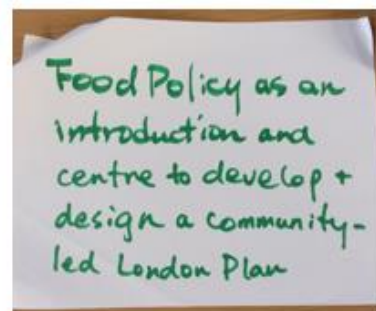 Food Policy as an
introduction and
centre to develop +
design a community-
led London Plan